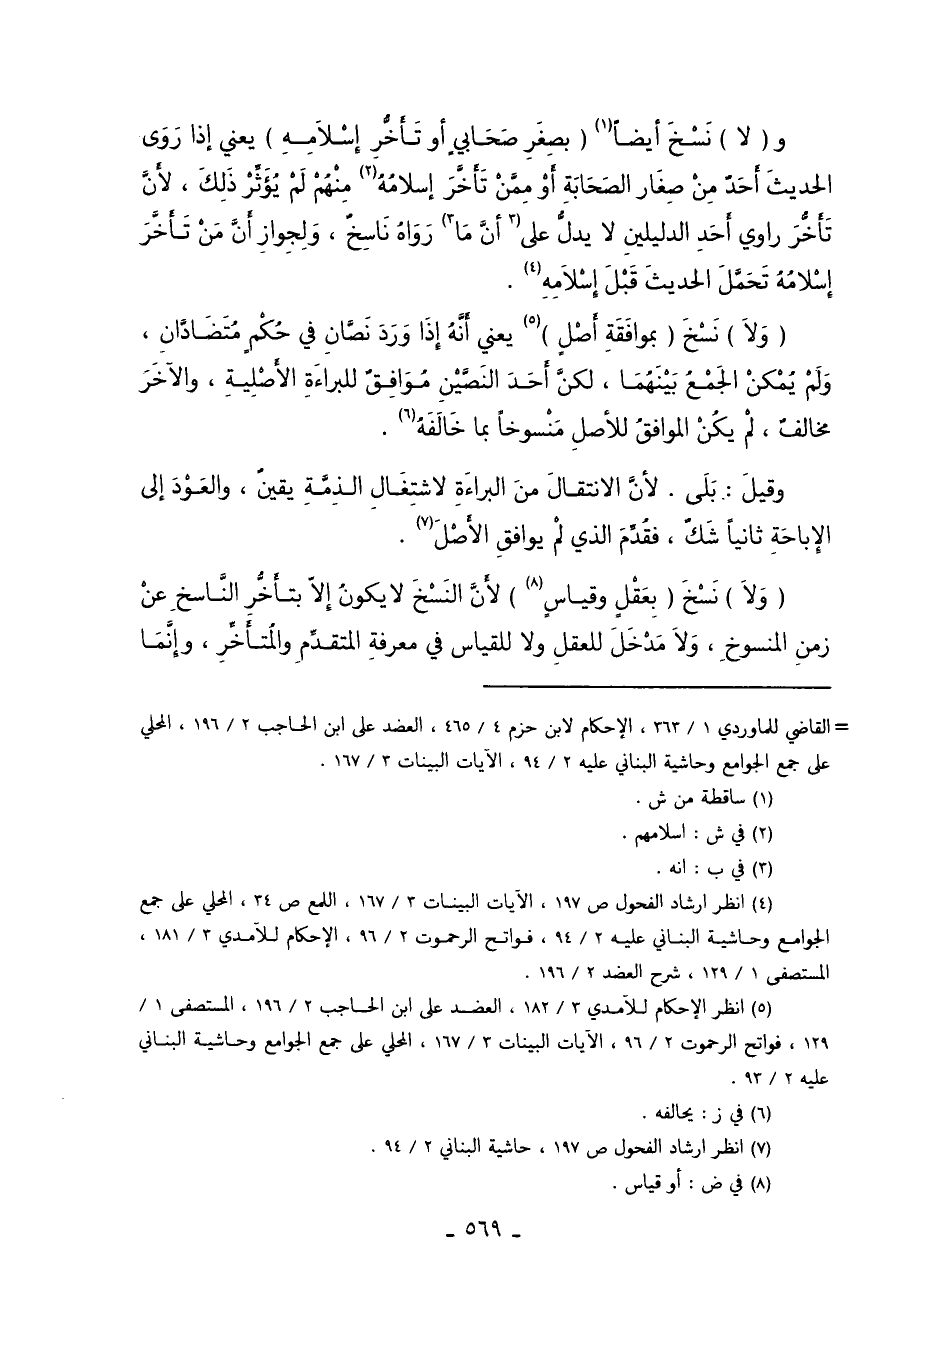 و ( لا ) نَسْخَ أيضاً(١) ( بصِغَرِ صَحَابي أو تَأَخُّرِ إسْلاَمِـهِ ) يعني إذا رَوَى
الحديثَ أَحَدٌ مِنْ صِغَارِ الصَحَابَةِ أَوْ مِمَّنْ تَأَخَّرَ إسلامُهُ(٢) مِنْهُمْ لَمْ يُؤَثِّرْ ذَلِكَ ، لأَنَّ
تَأَخُّرَ راوي أَحَدِ الدليلين لا يدلُّ على(٣ أنَّ مَا٣) رَوَاهُ نَاسِخٌ ، وَلِجوازِ أَنَّ مَنْ تَـأَخَّرَ
إسْلامُهُ تَحَمَّلَ الحديثَ قَبْلَ إسْلاَمِهِ(٤) .
( وَلاَ ) نَسْخَ ( بموافَقَةِ أَصْلٍ )(٥) يعني أَنَّهُ إذَا وَرَدَ نَصَّان في حُكْمٍ مُتَضَـادَّان ،
وَلَمْ يُمْكِنْ الجَمْعُ بَيْنَهُمَـا ، لكنَّ أَحَـدَ النَصَّيْنِ مُـوَافِـقٌ للبراءَةِ الأَصْلِيـةِ ، والآخَرَ
مخالفٌ ، لمْ يكُنْ الموافقُ للأصلِ مَنْسوخاً بما خَالَفَهُ(٦) .
وقيلَ : بَلَى . لأنَّ الانتقـالَ منَ البراءَةِ لاشتِغَـالِ الـذمَّـةِ يقينٌ ، والعَـوْدَ إلى
الإباحَةِ ثانياً شَكٌّ ، فقُدِّمَ الذي لمْ يوافقِ الأَصْلَ(٧) .
( وَلاَ ) نَسْخَ ( بعَقْلٍ وقيـاسٍ(٨) ) لأَنَّ النَسْخَ لا يكونُ إلاّ بتـأخُّرِ النَّاسخِ عنْ
زمنِ المنسوخِ ، وَلاَ مَدْخَلَ للعقلِ ولا للقياسِ في معرفةِ المتقدِّمِ والمُتـأخِّرِ ، وإنَّمَـا
= القاضي للماوردي ١ / ٣٦٣ ، الإحكام لابن حزم ٤ / ٤٦٥ ، العضد على ابن الحـاجب ٢ / ١٩٦ ، المحلي
على جمع الجوامع وحاشية البناني عليه ٢ / ٩٤ ، الآيات البينات ٣ / ١٦٧ .
(١) ساقطة من ش .
(٢) في ش : اسلامهم .
(٣) في ب : انه .
(٤) انظر ارشاد الفحول ص ١٩٧ ، الآيات البينـات ٣ / ١٦٧ ، اللمع ص ٣٤ ، المحلي على جمع
الجوامـع وحـاشيـة البنـاني عليـه ٢ / ٩٤ ، فـواتـح الرحمـوت ٢ / ٩٦ ، الإحكام لـلآمـدي ٣ / ١٨١ ،
المستصفى ١ / ١٢٩ ، شرح العضد ٢ / ١٩٦ .
(٥) انظر الإحكام لـلآمـدي ٣ / ١٨٢ ، العضـد على ابن الحـاجب ٢ / ١٩٦ ، المستصفى ١ /
١٢٩ ، فواتح الرحموت ٢ / ٩٦ ، الآيات البينات ٣ / ١٦٧ ، المحلي على جمع الجوامع وحـاشيـة البنـاني
عليه ٢ / ٩٣ .
(٦) في ز : يخالفه .
(٧) انظر ارشاد الفحول ص ١٩٧ ، حاشية البناني ٢ / ٩٤ .
(٨) في ض : أو قياس .
ـ ٥٦٩ ـ